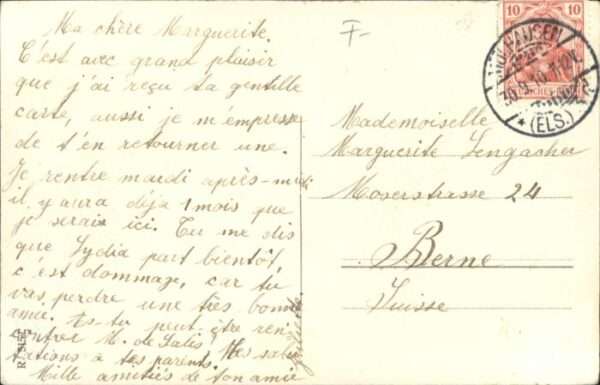 Ma chère Marguerite.
C'est avec grand plaisir
que j'ai reçu ta gentille
carte, aussi je m'empresse
de t'en retourner une.
Je rentre mardi après-midi
il y aura déja 1 mois que
je serais ici. Tu me dis
que Lydia part bientôt,
c'est dommage, car tu
vas perdre une très bonne
amie. Es-tu peut être ren-
contrer M. de Salis? Mes salu-
tations à tes parents.
Mille amitiés de ton amie
F-
Mademoiselle
Marguerite Lengacher
Moserstrasse 24
Berne
Suisse
10 10
MÜLHAUSEN
30.9.10
* (ELS.)